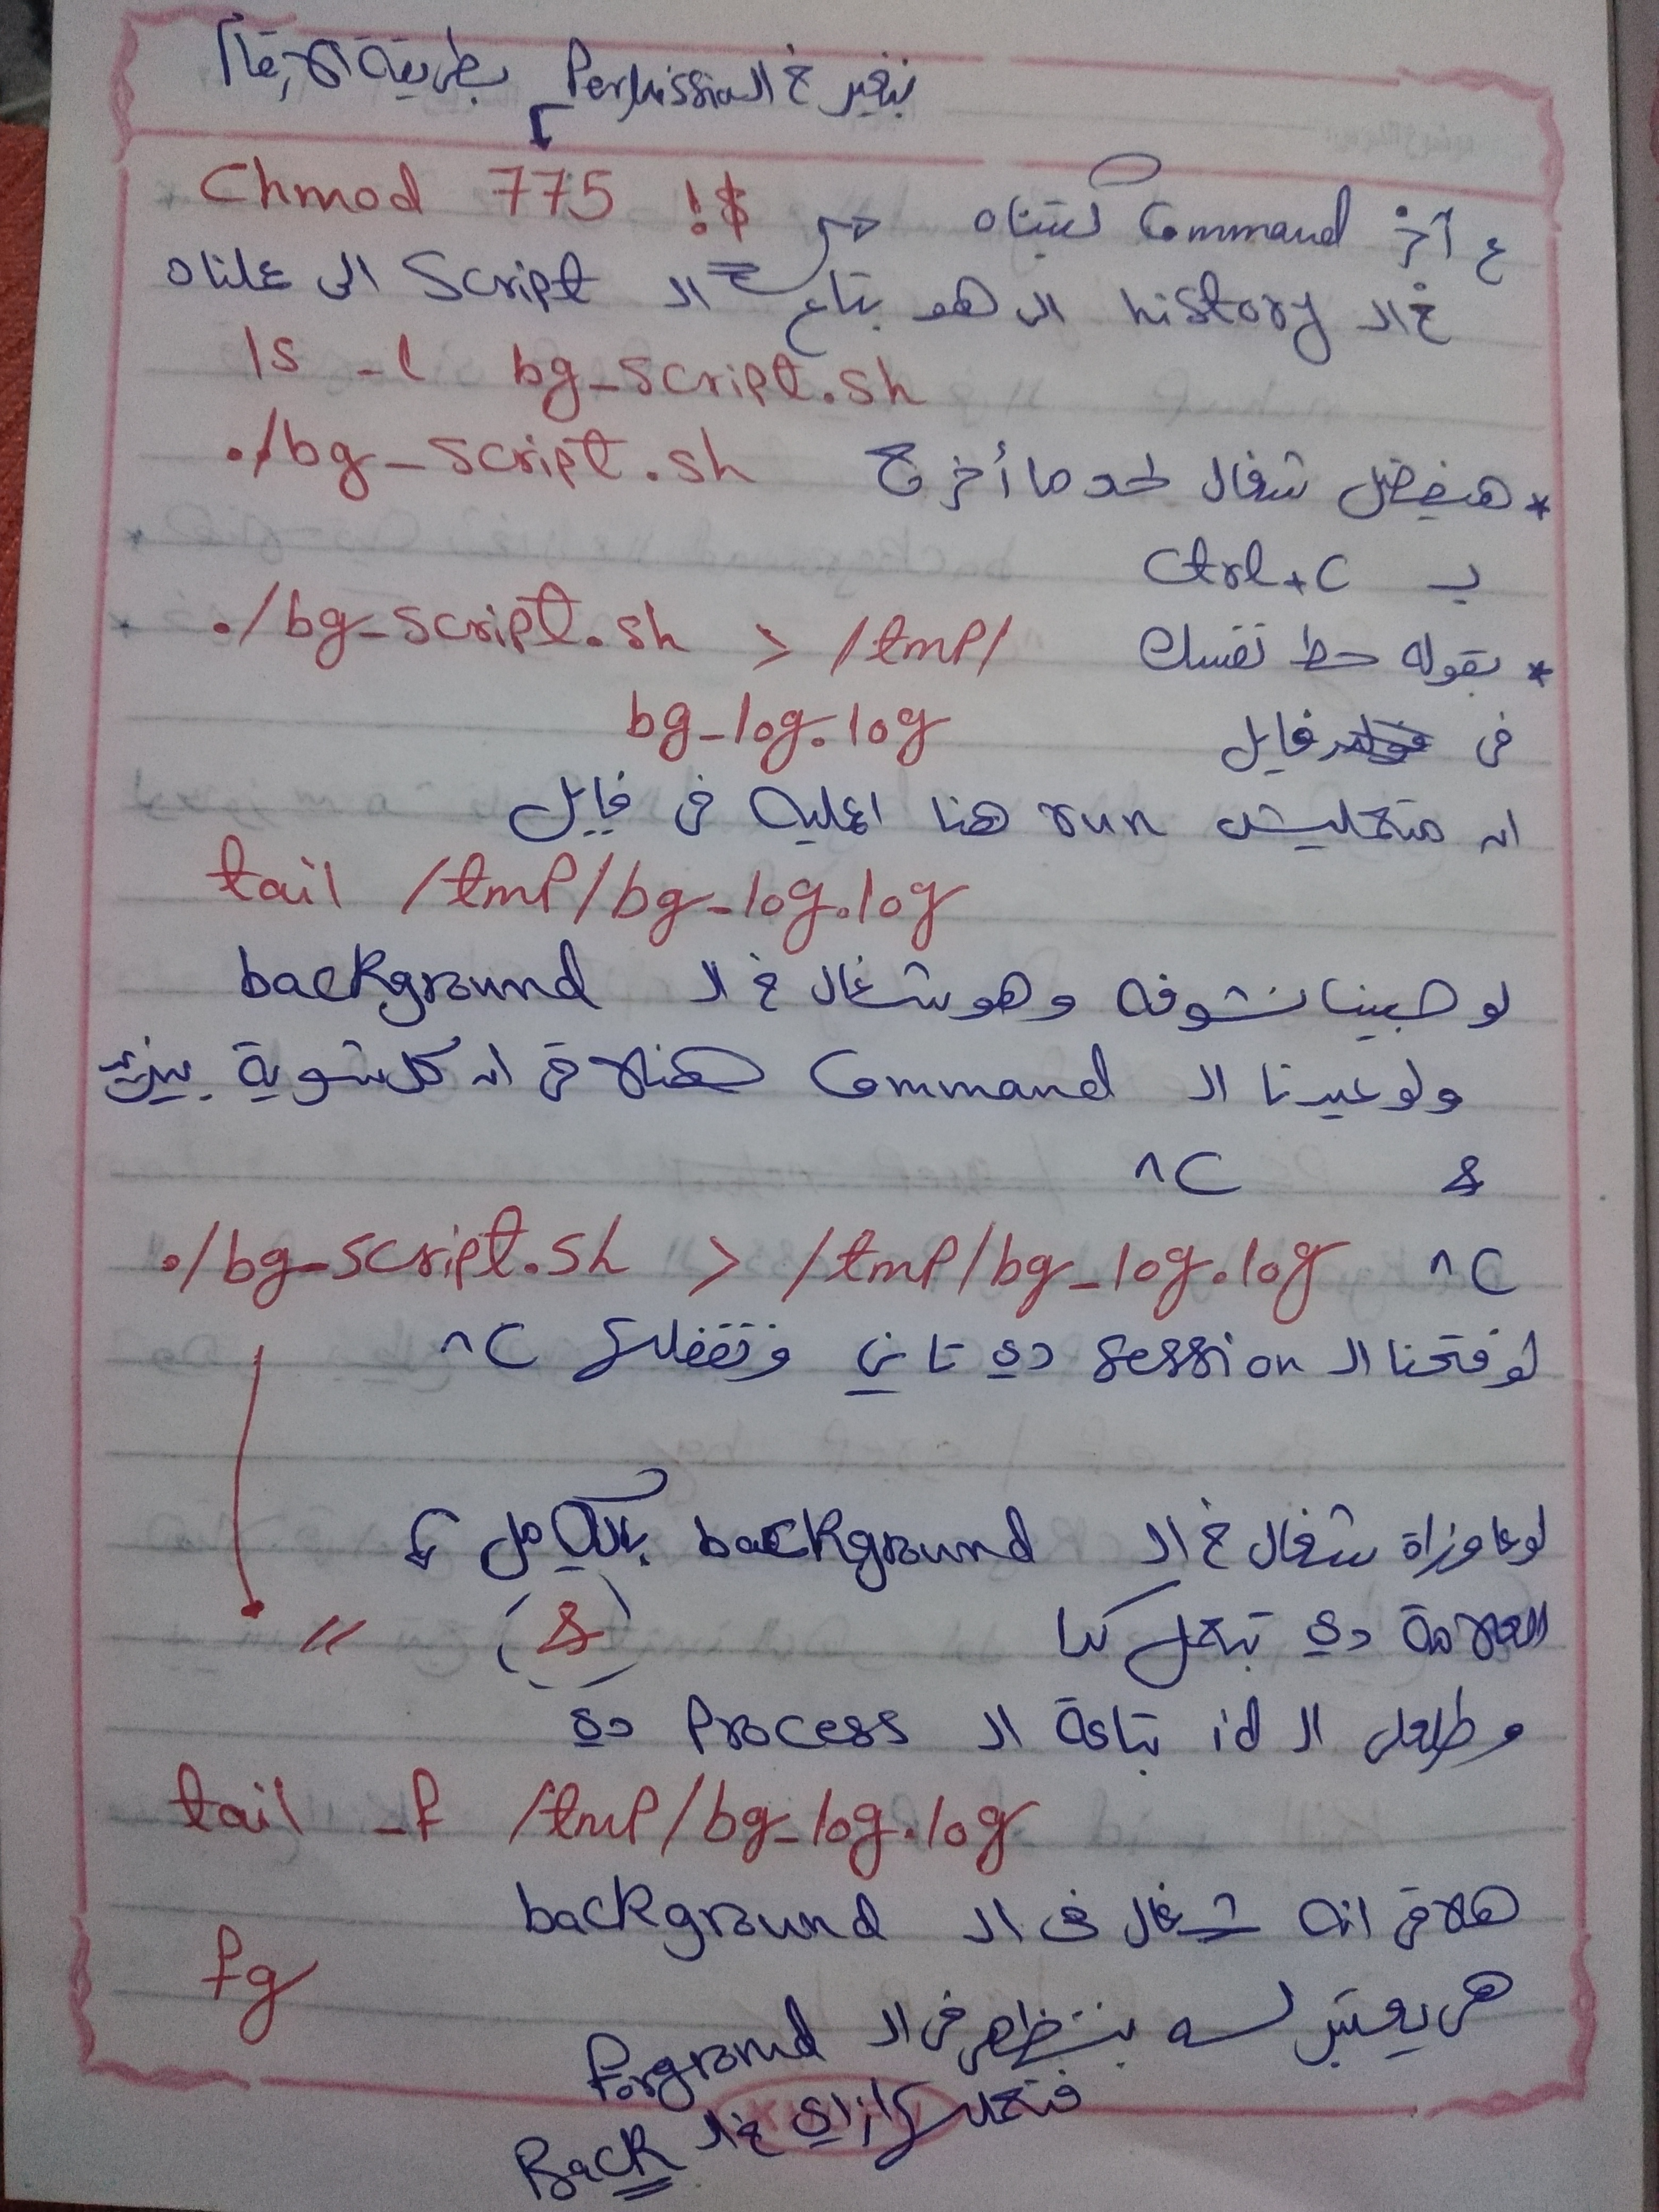 بنغير في الـ Permission بطريقة الأرقام
Chmod 775 !$ ع آخر Command كتبناه
في الـ history الى هو بتاع الـ Script الى عملناه
ls -l bg-script.sh
./bg-script.sh * هيفضل شغال لحد ما أخرج
بـ Ctrl+C
./bg-script.sh > /tmp/ * بقوله حط نفسك
bg-log.log فى فايل
انه متعمليش run هنا اعمليه فى فايل
tail /tmp/bg-log.log
لو حبينا نشوفه وهو شغال في الـ background
ولو عيدنا الـ Command هنلاقى انه كل شوية بيزيد
& ^C
./bg-script.sh > /tmp/bg-log.log ^C
لو فتحنا الـ session دى تانى ونقفلها ^C
لو عاوزاه شغال في الـ background بالكامل
العلامة دى تبعمل كدا (&) "
وطلعلى الـ id بتاعة الـ Process دى
tail -f /tmp/bg-log.log
هلاقى انه شغال فى الـ background
fg
هى يعتبر لسه بتظهر فى الـ Forground
فنعملها ازاى في الـ Back